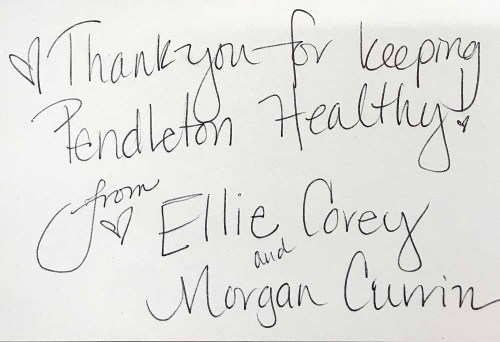 ♡ Thank you for keeping
Pendleton Healthy!
from
♡ Ellie Corey
and
Morgan Currin